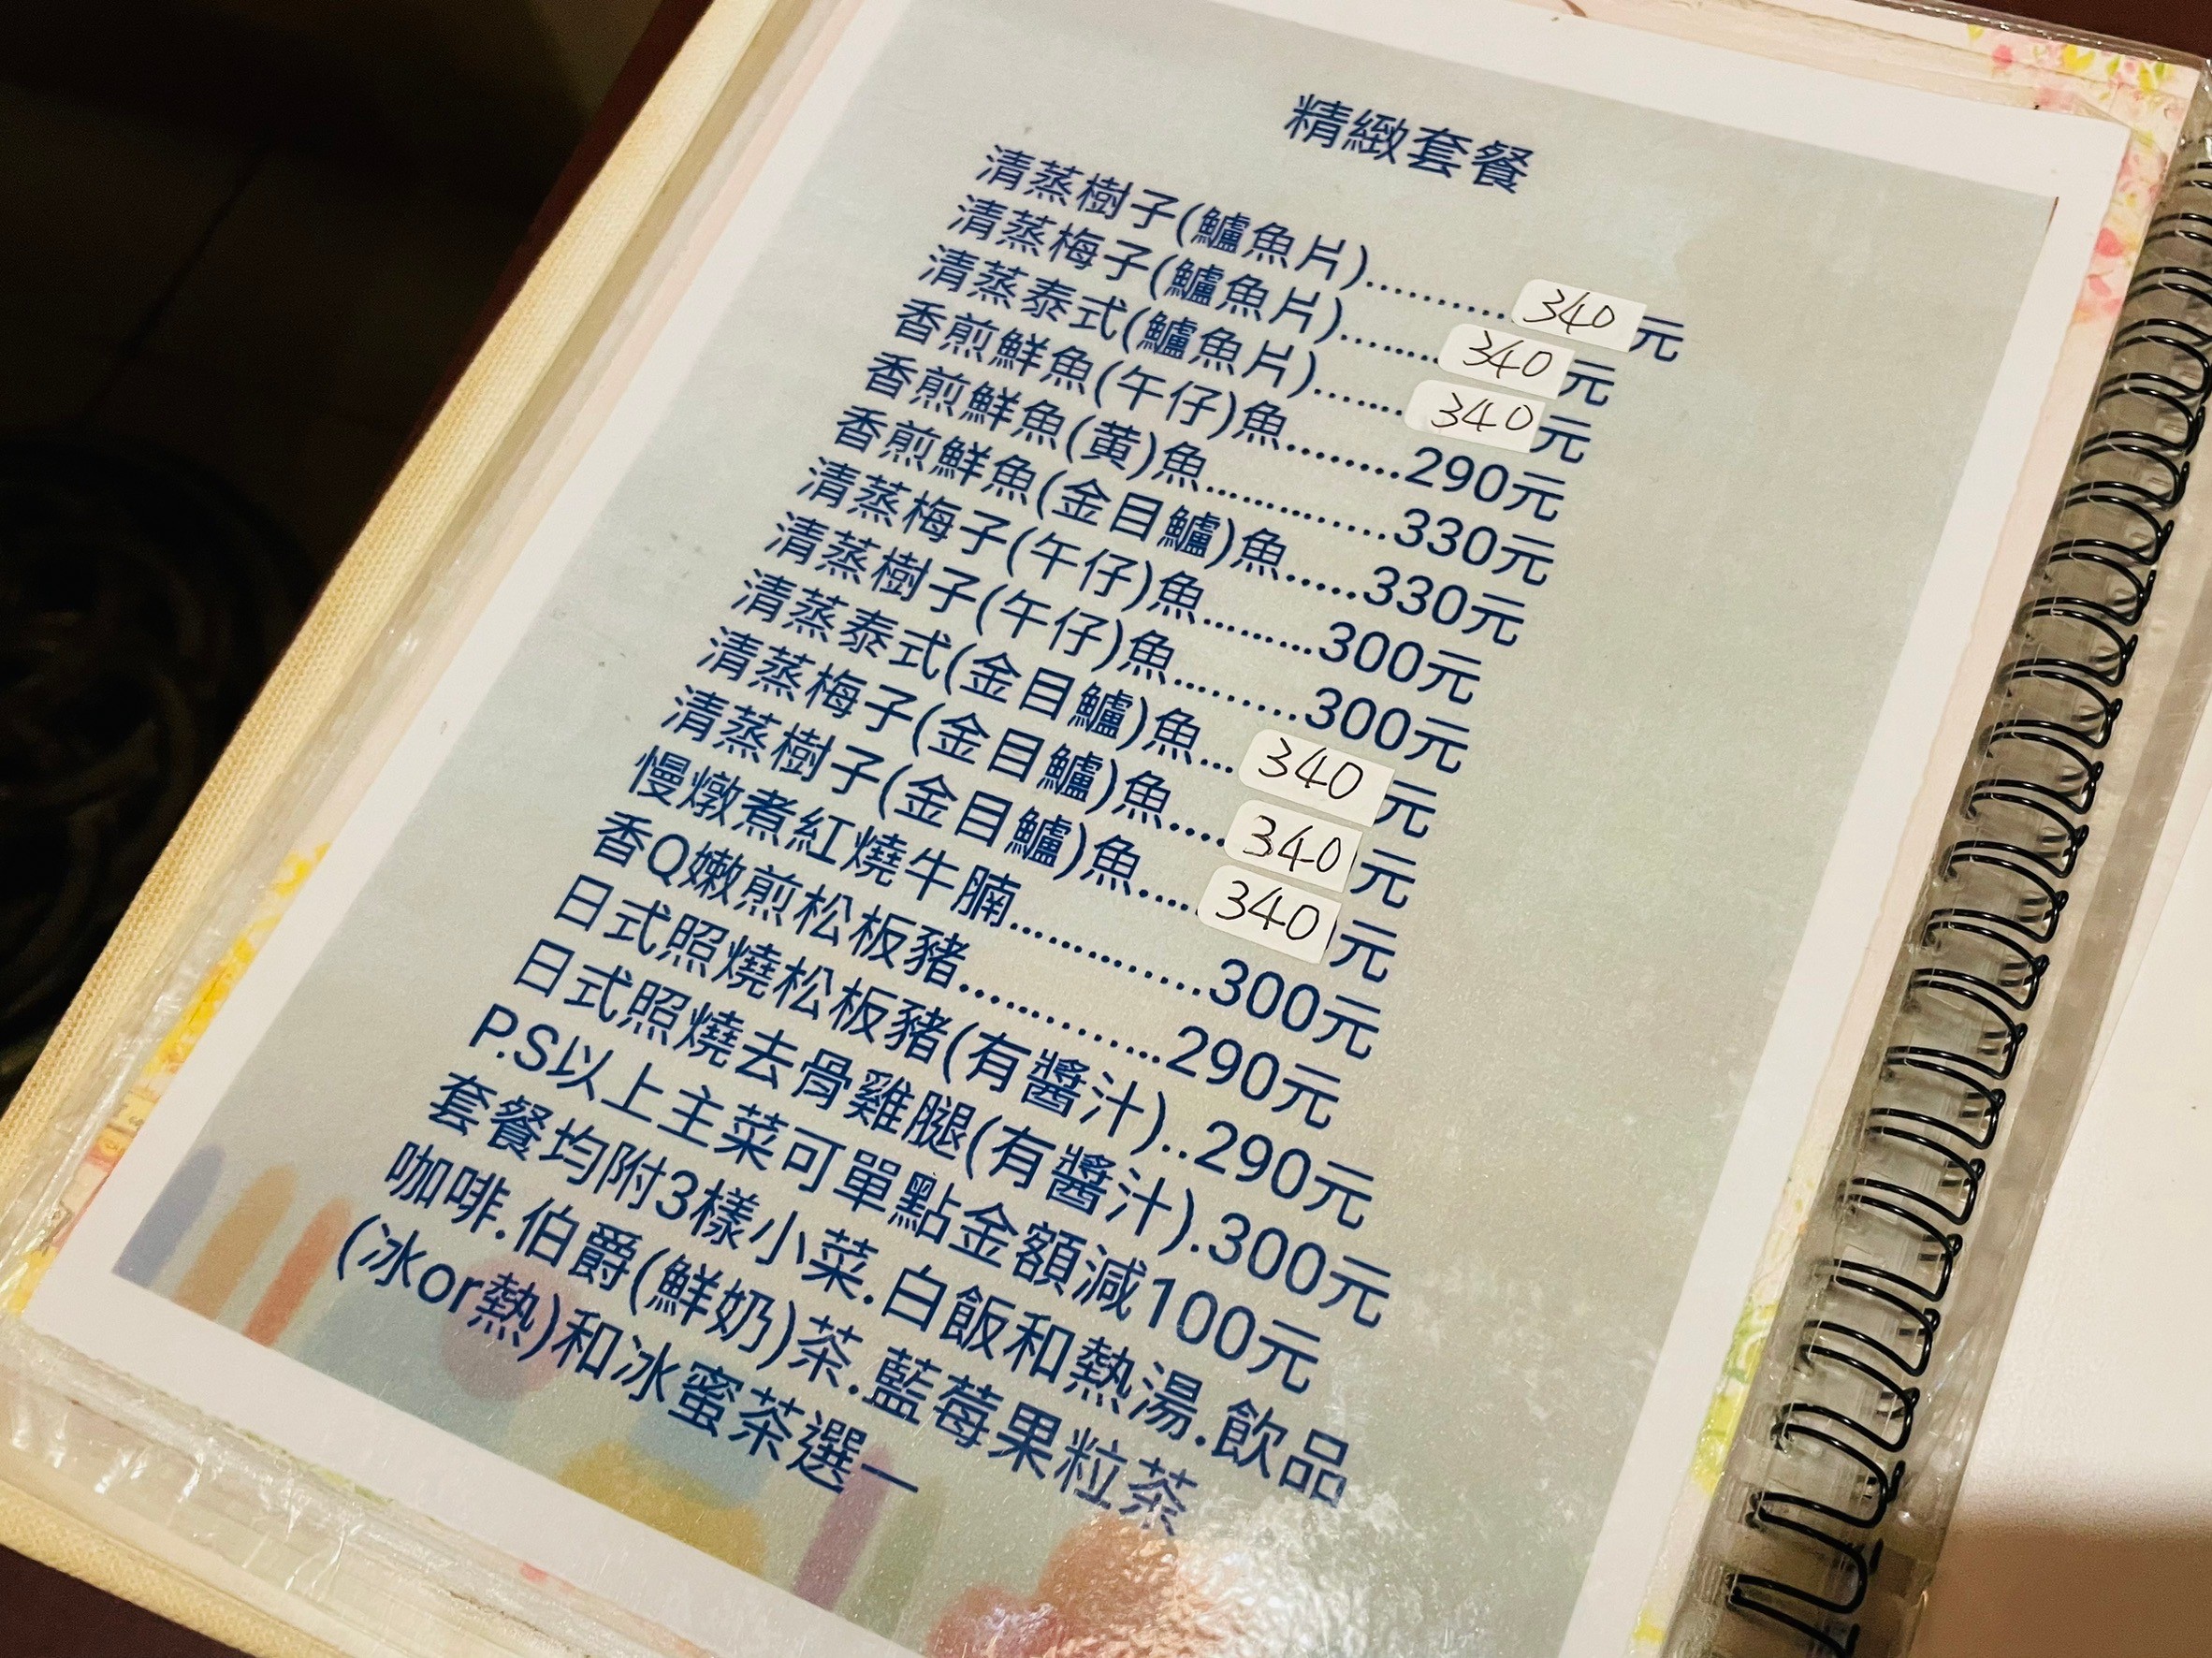 精緻套餐
清蒸樹子(鱸魚片)..........340元
清蒸梅子(鱸魚片).......340元
清蒸泰式(鱸魚片).......340元
香煎鮮魚(午仔)魚........290元
香煎鮮魚(黃)魚.............330元
香煎鮮魚(金目鱸)魚......330元
清蒸梅子(午仔)魚.........300元
清蒸樹子(午仔)魚.........300元
清蒸泰式(金目鱸)魚...340元
清蒸梅子(金目鱸)魚....340元
清蒸樹子(金目鱸)魚....340元
慢燉煮紅燒牛腩..............300元
香Q嫩煎松板豬..............290元
日式照燒松板豬(有醬汁)..290元
日式照燒去骨雞腿(有醬汁).300元
P.S以上主菜可單點金額減100元
套餐均附3樣小菜.白飯和熱湯.飲品
咖啡.伯爵(鮮奶)茶.藍莓果粒茶
(冰or熱)和冰蜜茶選一